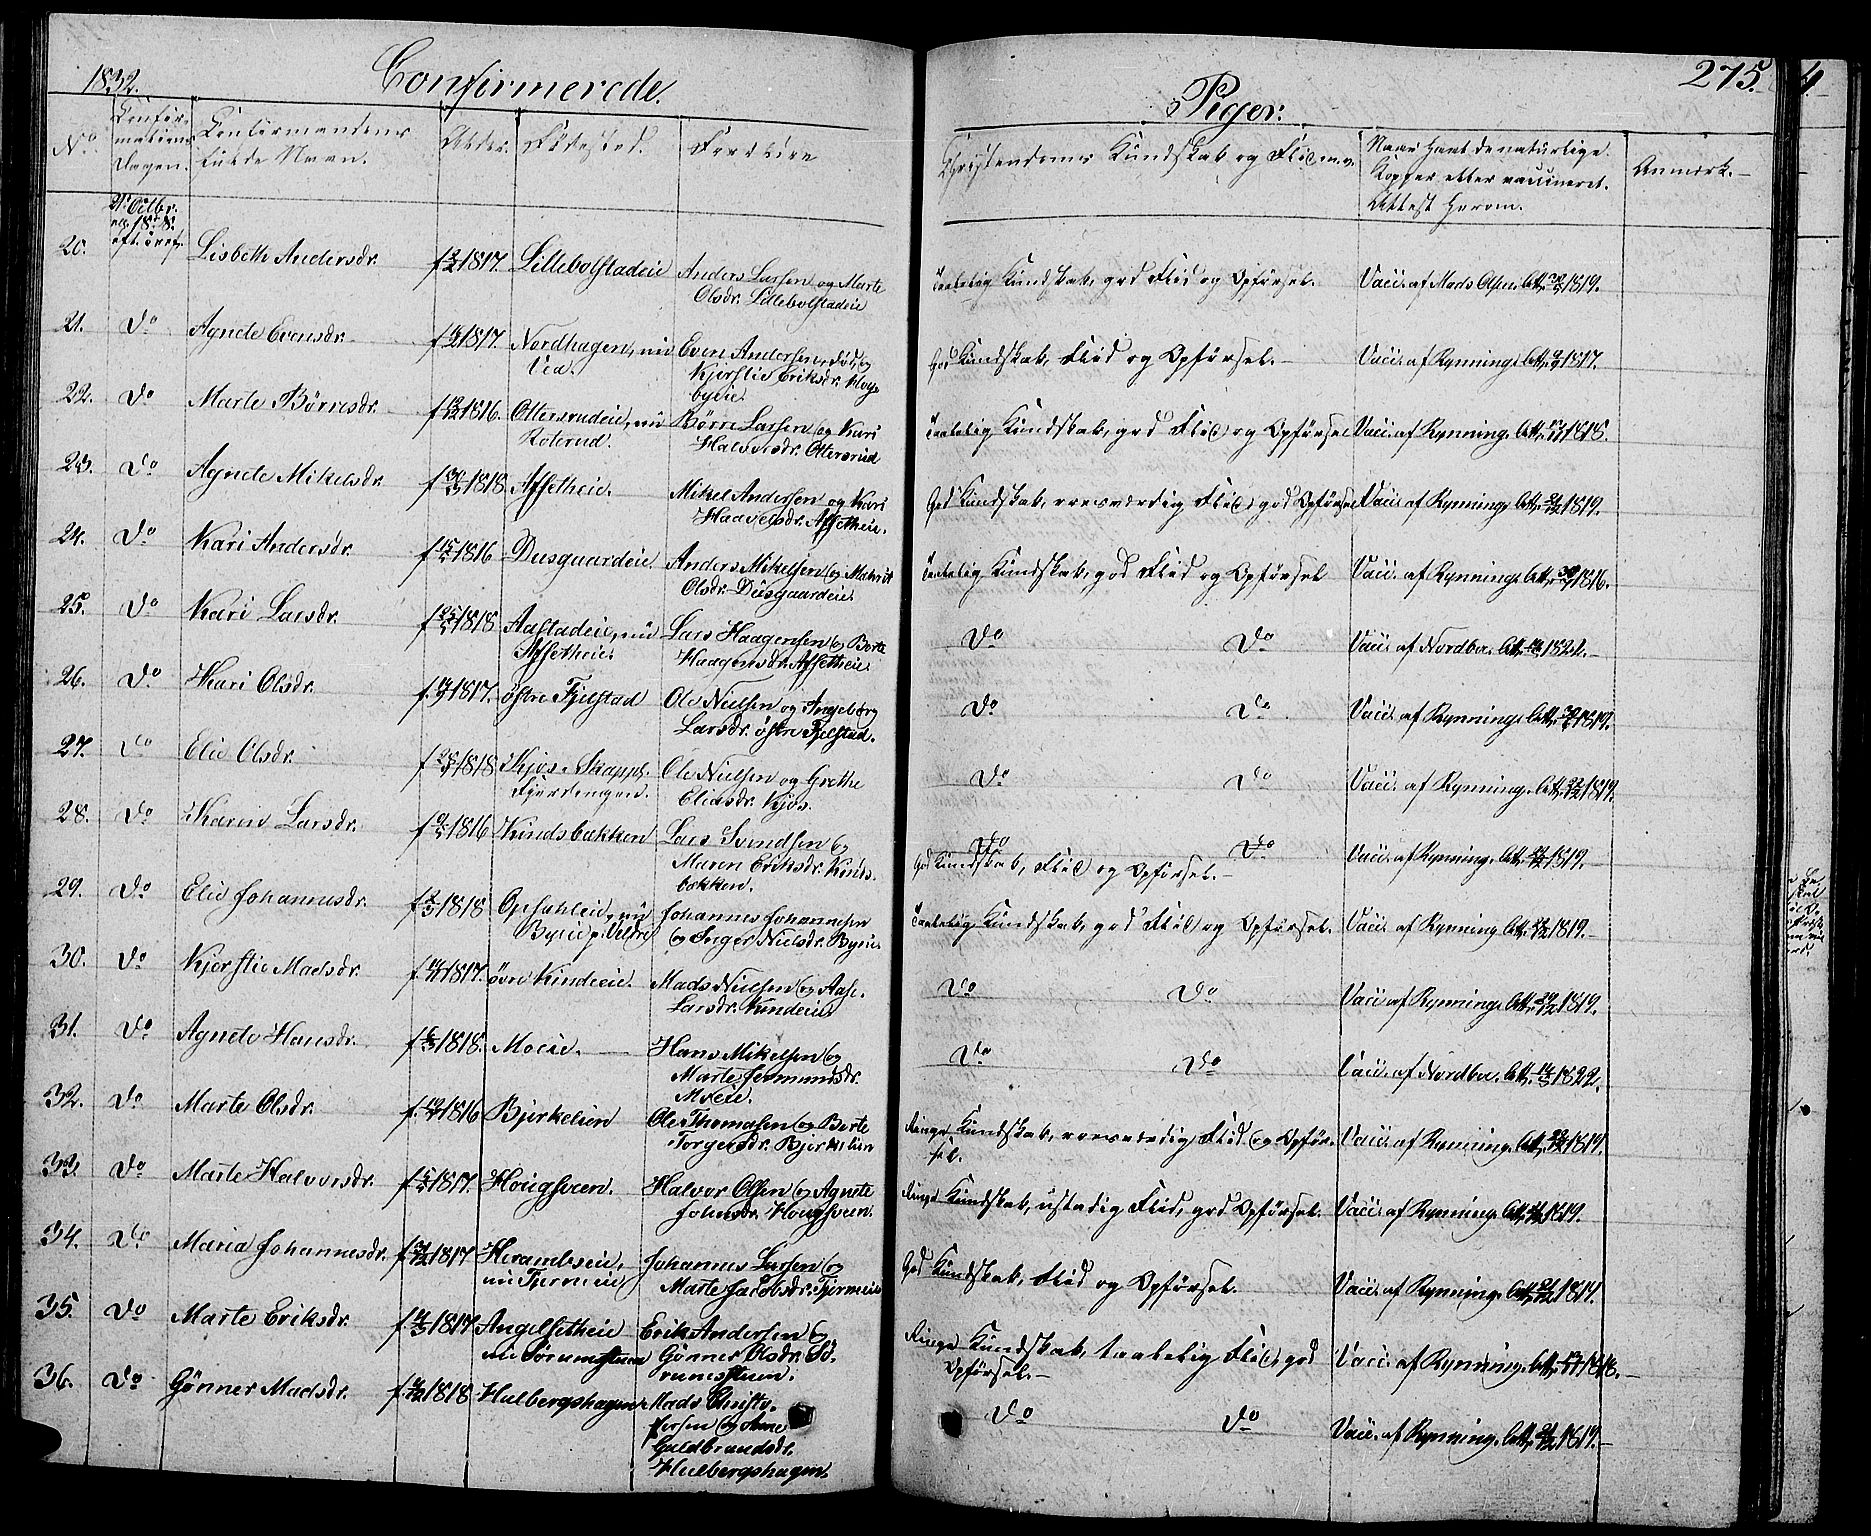 1832. Confirmerede. Piger: 275.
No. Confir-mations Dagen. Confirmandens fulde Navn. Alder. Fødested. Forældre Christendoms Kundskab og Flid m.v. Naar havt de naturlige Kopper eller vaccineret. Attest herom. Anmærk.
20. Lisbeth Andersdr. 1817. Lillebolstadeie Anders Larsen og Marte Olsdr. Lillebolstadeie Taalelig Kundskab, god Flid og Opførsel. Vacc. af Mads Olsen. Att. 1819.
21. Do Agnete Evensdr. 1817. Nordhagen, nu Even Andersen, død, og Kjerstie Eriksdr. God Kundskab, Flid og Opførsel. Vacc. af Rynning. Att. 1817.
22. Do Marte Børresdr. 1816. Ottersrudeie, nu Roterud. Børre Larsen og Kari Halvorsdr. Ottersrud Taalelig Kundskab, god Flid og Opførsel Vacc. af Rynning. Att. 1818.
23. Do Agnete Mikelsdr. 1818 Affsetheie. Mikel Andersen og Kari Haavelsdr. Affsetheie. God Kundskab, roesværdig Flid, god Opførsel Vacc. af Rynning. Att. 1819.
24. Do Kari Andersdr. 1816 Dusgaardeie. Anders Mikelsen og Olsdr. Dusgaardeie. Taalelig Kundskab, god Flid og Opførsel Vacc. af Rynning. Att. 1816.
25. Do Kari Larsdr. 1818 Aastadeie, nu Affsetheie. Lars Haagensen og Berte Haagensdr. Affsetheie. Do Do Vacc. af Nordboe. Att. 1822.
26. Do Kari Olsdr. 1817. østre Fjelstad Ole Nielsen og Ingeborg Larsdr. østre Fjelstad. Do Do Vacc. af Rynning. Att. 1819.
27. Do Elie Olsdr. 1818 Kjøs. Fjerdingen. Ole Nielsen og Grethe Eliasdr. Kjøs. Do Do Vacc. af Rynning. Att. 1819.
28. Do Karen Larsdr. 1816 Kindsbækken Lars Svendsen og Maren Eriksdr. Kindsbækken. Do Do God Kundskab, Flid og Opførsel. Vacc. af Rynning. Att. 1819.
29. Do Elie Johannesdr. 1818 Opsahleie, nu Johannes Johannesen og Inger Nielsdr. Taalelig Kundskab, god Flid og Opførsel. Vacc. af Rynning Att. 1819.
30. Do Kjerstie Madsdr. 1817. øvre Kindeeie. Mads Nielsen og Aase Larsdr. Kindeeie. Do Do Vacc. af Rynning. Att. 1819.
31. Do Agnete Hansdr. 1818. Moeie. Hans Mikelsen og Marte Jermundsdr. Moeie. Do Do Vacc. af Nordboe. Att. 1822.
32. Do Marte Olsdr. 1816 Bjerkelien Ole Thomasen og Berte Torgersdr. Bjerkelien Ringe Kundskab, roesværdig Flid og Opførsel. Vacc. af Rynning. Att. 1819.
33. Do Marte Halvorsdr. 1817. Hougsveen. Halvor Olsen og Agnete Johnsdr. Hougsveen. Ringe Kundskab, ustadig Flid, god Opførsel. Vacc. af Rynning. Att. 1819.
34. Do Maria Johannesdr. 1817 nu Tjerneeie Johannes Larsen og Marte Jacobsdr. Tjerneeie God Kundskab, Flid og Opførsel. Vacc. af Rynning. Att. 1819.
35. Do Marte Eriksdr. 1817 Angelsetheie nu Sørumsstuen Erik Andersen og Gønner Olsdr. Sørumsstuen. Ringe Kundskab, taalelig Flid, god Opførsel. Vacc. af Rynning. Att. 1818.
36. Do Gønner Madsdr. 1818 Hulbergshagen Mads Christophersen og Anne Guldbrandsdr. Hulbergshagen. Do Do Vacc. af Rynning. Att. 1819.